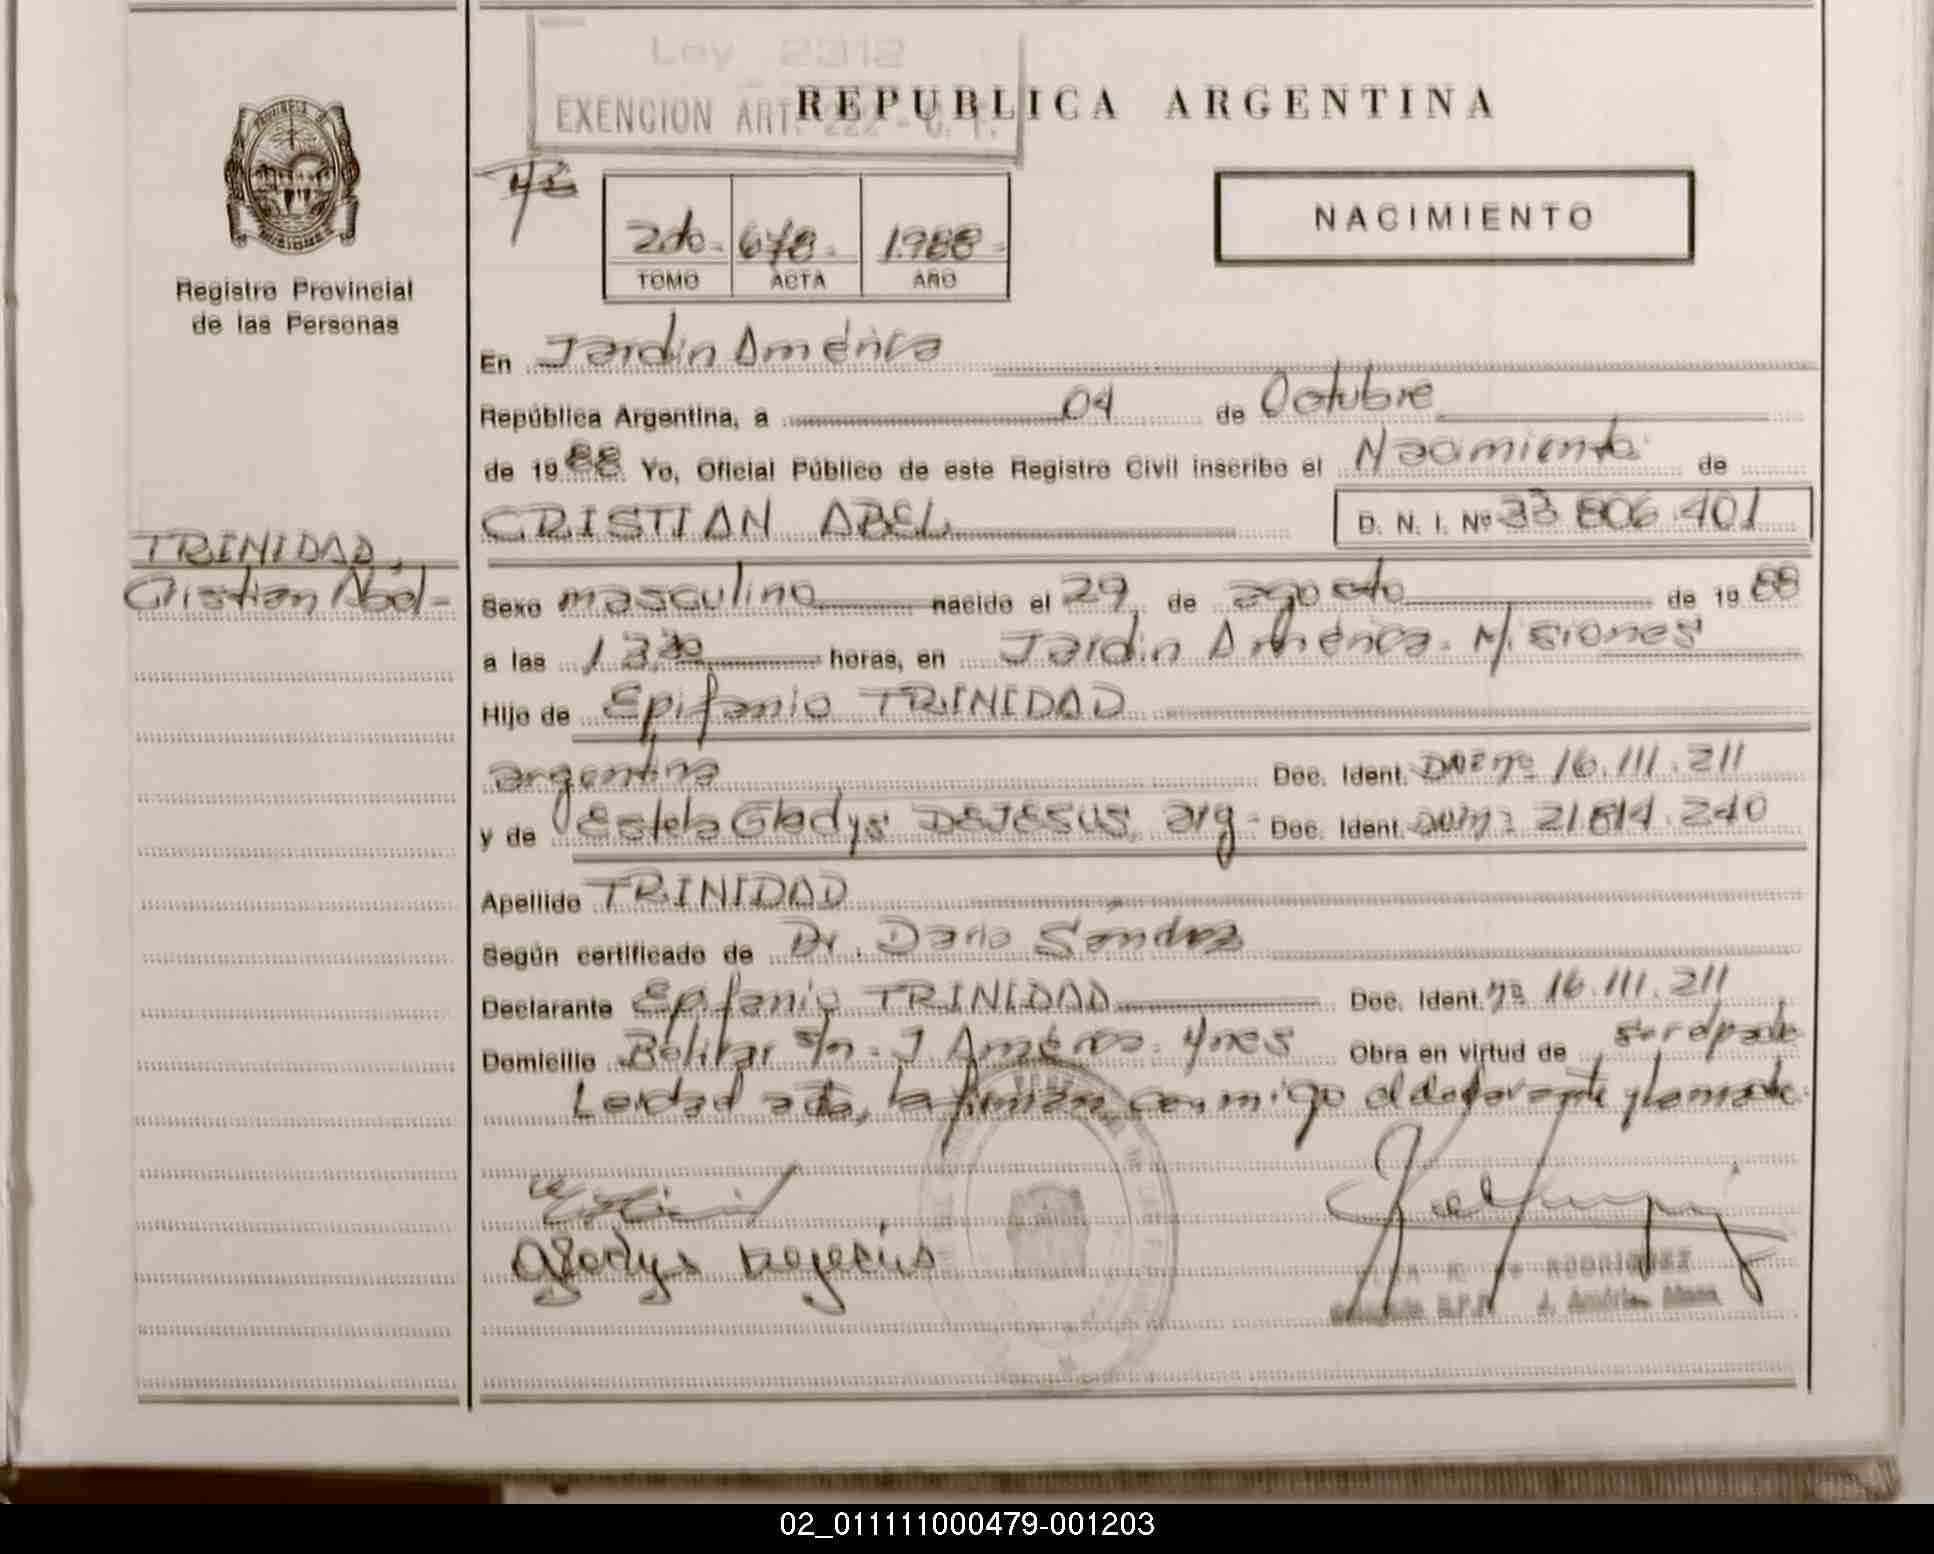 Ley 2312
EXENCION ART. 222 - C. F.
REPUBLICA ARGENTINA
2do. 678. 1.988
TOMO ACTA AÑO
NACIMIENTO
Registro Provincial
de las Personas
En Jardín América
República Argentina, a 04 de Octubre
de 1988 Yo, Oficial Público de este Registro Civil inscribo el Nacimiento de
CRISTIAN ABEL D. N. I. Nº 33 806.401
TRINIDAD,
Cristian Abel-
Sexo masculino nacido el 29 de agosto de 1988
a las 13,30 horas, en Jardín América. Misiones
Hijo de Epifanio TRINIDAD
argentina Doc. Ident. DNI nº 16.111.211
y de Estela Gladys DEJESUS, arg- Doc. Ident. DNI nº 21 814.240
Apellido TRINIDAD
Según certificado de Dr. Dario Sández
Declarante Epifanio TRINIDAD Doc. Ident. nº 16.111.211
Domicilio Bolívar s/n. J. América. Mnes Obra en virtud de ser el padre
Leída el acta, la firman conmigo el declarante y la madre.
Gladys Dejesús
RODRIGUEZ
J. América
02_011111000479-001203